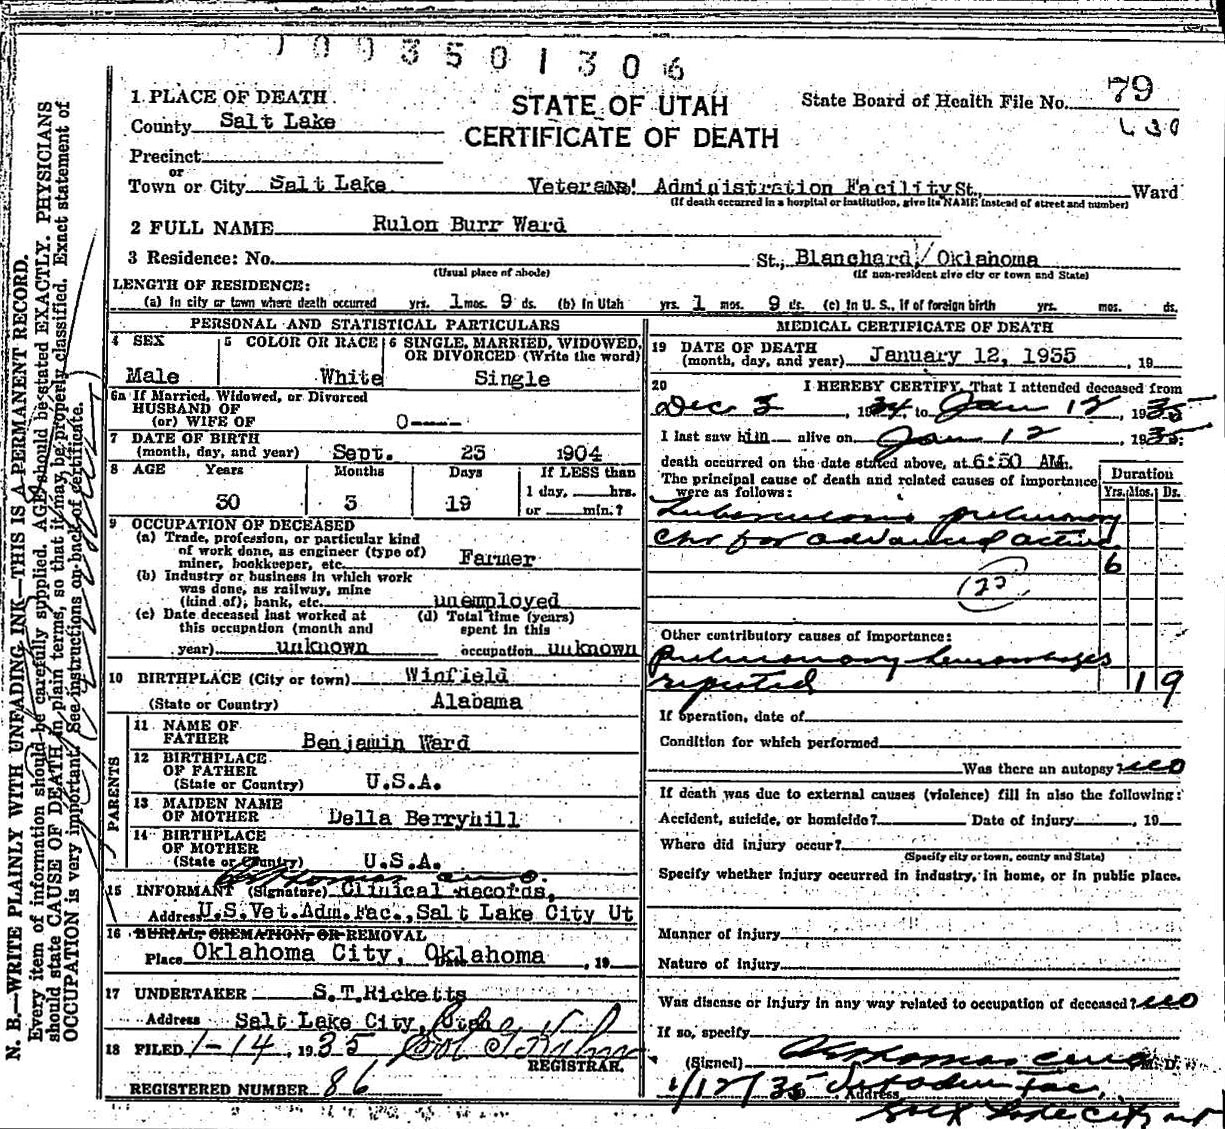 003501306
1 PLACE OF DEATH
STATE OF UTAH
CERTIFICATE OF DEATH
State Board of Health File No. 79
County Salt Lake
Precinct
or
Town or City Salt Lake Veterans' Administration Facility St., Ward
(If death occurred in a hospital or institution, give its NAME instead of street and number)
2 FULL NAME Rulon Burr Ward
3 Residence: No. St., Blanchard, Oklahoma
(Usual place of abode) (If non-resident give city or town and State)
LENGTH OF RESIDENCE:
(a) In city or town where death occurred yrs. 1 mos. 9 ds. (b) In Utah yrs. 1 mos. 9 ds. (c) In U. S., if of foreign birth yrs. mos. ds.
PERSONAL AND STATISTICAL PARTICULARS
4 SEX 5 COLOR OR RACE 6 SINGLE, MARRIED, WIDOWED,
OR DIVORCED (Write the word)
Male White Single
6a If Married, Widowed, or Divorced
HUSBAND OF
(or) WIFE OF 0----
7 DATE OF BIRTH
(month, day, and year) Sept. 23 1904
8 AGE Years Months Days If LESS than
1 day, hrs.
30 3 19 or min.?
9 OCCUPATION OF DECEASED
(a) Trade, profession, or particular kind
of work done, as engineer (type of)
miner, bookkeeper, etc. Farmer
(b) Industry or business in which work
was done, as railway, mine
(kind of), bank, etc. unemployed
(c) Date deceased last worked at (d) Total time (years)
this occupation (month and spent in this
year) unknown occupation unknown
10 BIRTHPLACE (City or town) Winfield
(State or Country) Alabama
PARENTS
11 NAME OF
FATHER Benjamin Ward
12 BIRTHPLACE
OF FATHER
(State or Country) U.S.A.
13 MAIDEN NAME
OF MOTHER Della Berryhill
14 BIRTHPLACE
OF MOTHER
(State or Country) U.S.A.
15 INFORMANT (Signature) Clinical Records,
Address U.S.Vet.Adm.Fac., Salt Lake City Ut
16 BURIAL, CREMATION, OR REMOVAL
Place Oklahoma City, Oklahoma , 19
17 UNDERTAKER S.T.Ricketts
Address Salt Lake City, Utah
18 FILED 1-14, 1935
REGISTRAR.
REGISTERED NUMBER 86
MEDICAL CERTIFICATE OF DEATH
19 DATE OF DEATH
(month, day, and year) January 12, 1935 , 19
20 I HEREBY CERTIFY, That I attended deceased from
Dec 3, 1934, to Jan 12, 1935
I last saw him alive on Jan 12, 1935;
death occurred on the date stated above, at 6:50 AM.
The principal cause of death and related causes of importance
were as follows:
Duration
Yrs. Mos. Ds.
Tuberculosis pulmonary
chr far advanced active
6
Other contributory causes of importance:
Pulmonary hemorrhages
repeated 1 9
If operation, date of
Condition for which performed
Was there an autopsy? no
If death was due to external causes (violence) fill in also the following:
Accident, suicide, or homicide? Date of injury , 19
Where did injury occur?
(Specify city or town, county and State)
Specify whether injury occurred in industry, in home, or in public place.
Manner of injury
Nature of injury
Was disease or injury in any way related to occupation of deceased? no
If so, specify
(Signed) M. D.
1/12/35 Address Vet Adm Fac,
Salt Lake City Ut
N. B.—WRITE PLAINLY WITH UNFADING INK—THIS IS A PERMANENT RECORD.
Every item of information should be carefully supplied. AGE should be stated EXACTLY. PHYSICIANS
should state CAUSE OF DEATH in plain terms, so that it may be properly classified. Exact statement of
OCCUPATION is very important. See instructions on back of certificate.